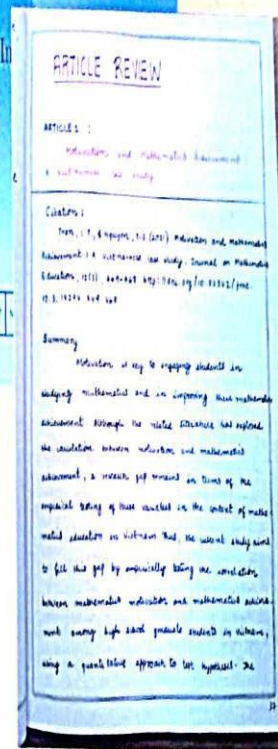 In
ARTICLE REVIEW
ARTICLE 1 :
Motivation and Mathematics Achievement
A Vietnamese case study
Citation :
Tran, L.T., & Nguyen, T.S (2021) Motivation and Mathematics
Achievement : A Vietnamese case study. Journal on Mathematics
Education, 12(3),
Summary
Motivation is key to engaging students in
studying mathematics and in improving their mathematics
achievement. Although the related literature has explored
the correlation between motivation and mathematics
achievement, a research gap remains in terms of the
empirical testing of these variables in the context of mathe
matics education in Vietnam. Thus, the current study aims
to fill this gap by empirically testing the correlation
between mathematics motivation and mathematics achieve
ment among high school graduate students in Vietnam,
using a quantitative approach to test hypotheses. The